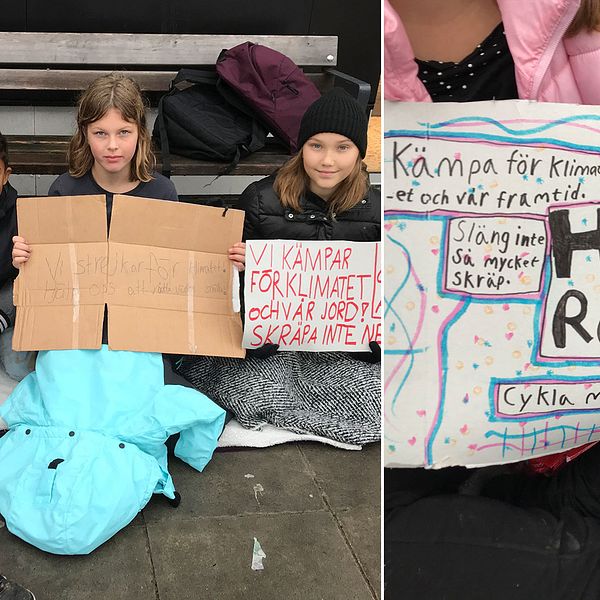 Vi strejkar för klimatet.
Hjälp oss att rädda
VI KÄMPAR
FÖR KLIMATET
OCH VÅR JORD!
SKRÄPA INTE NE
Kämpa för klima
-et och vår framtid.
Släng inte
så mycket
skräp.
H
R
Cykla m